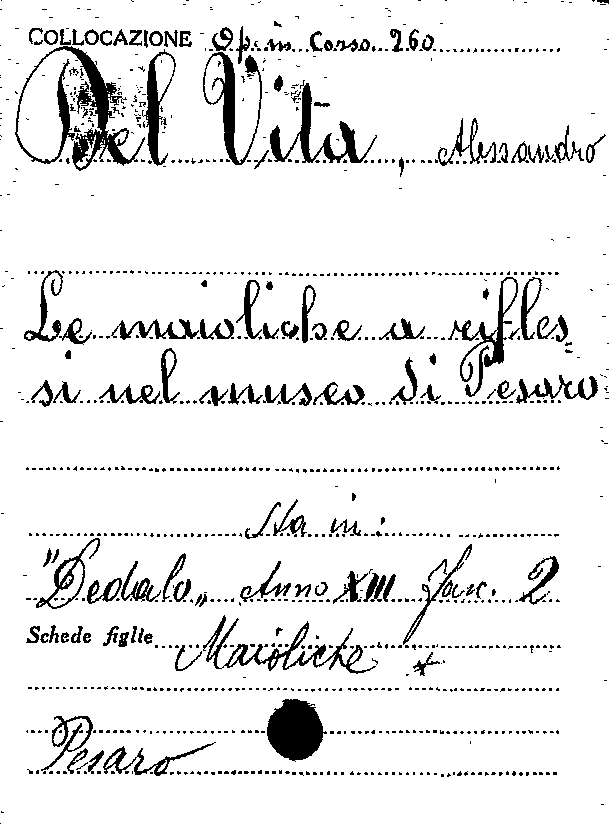 COLLOCAZIONE Op. in Corso. 260
Del Vita, Alessandro
Le maioliche a rifles=
si nel museo di Pesaro
Sta in:
"Dedalo„ Anno XIII Fasc. 2
Schede figlie Maioliche *
Pesaro